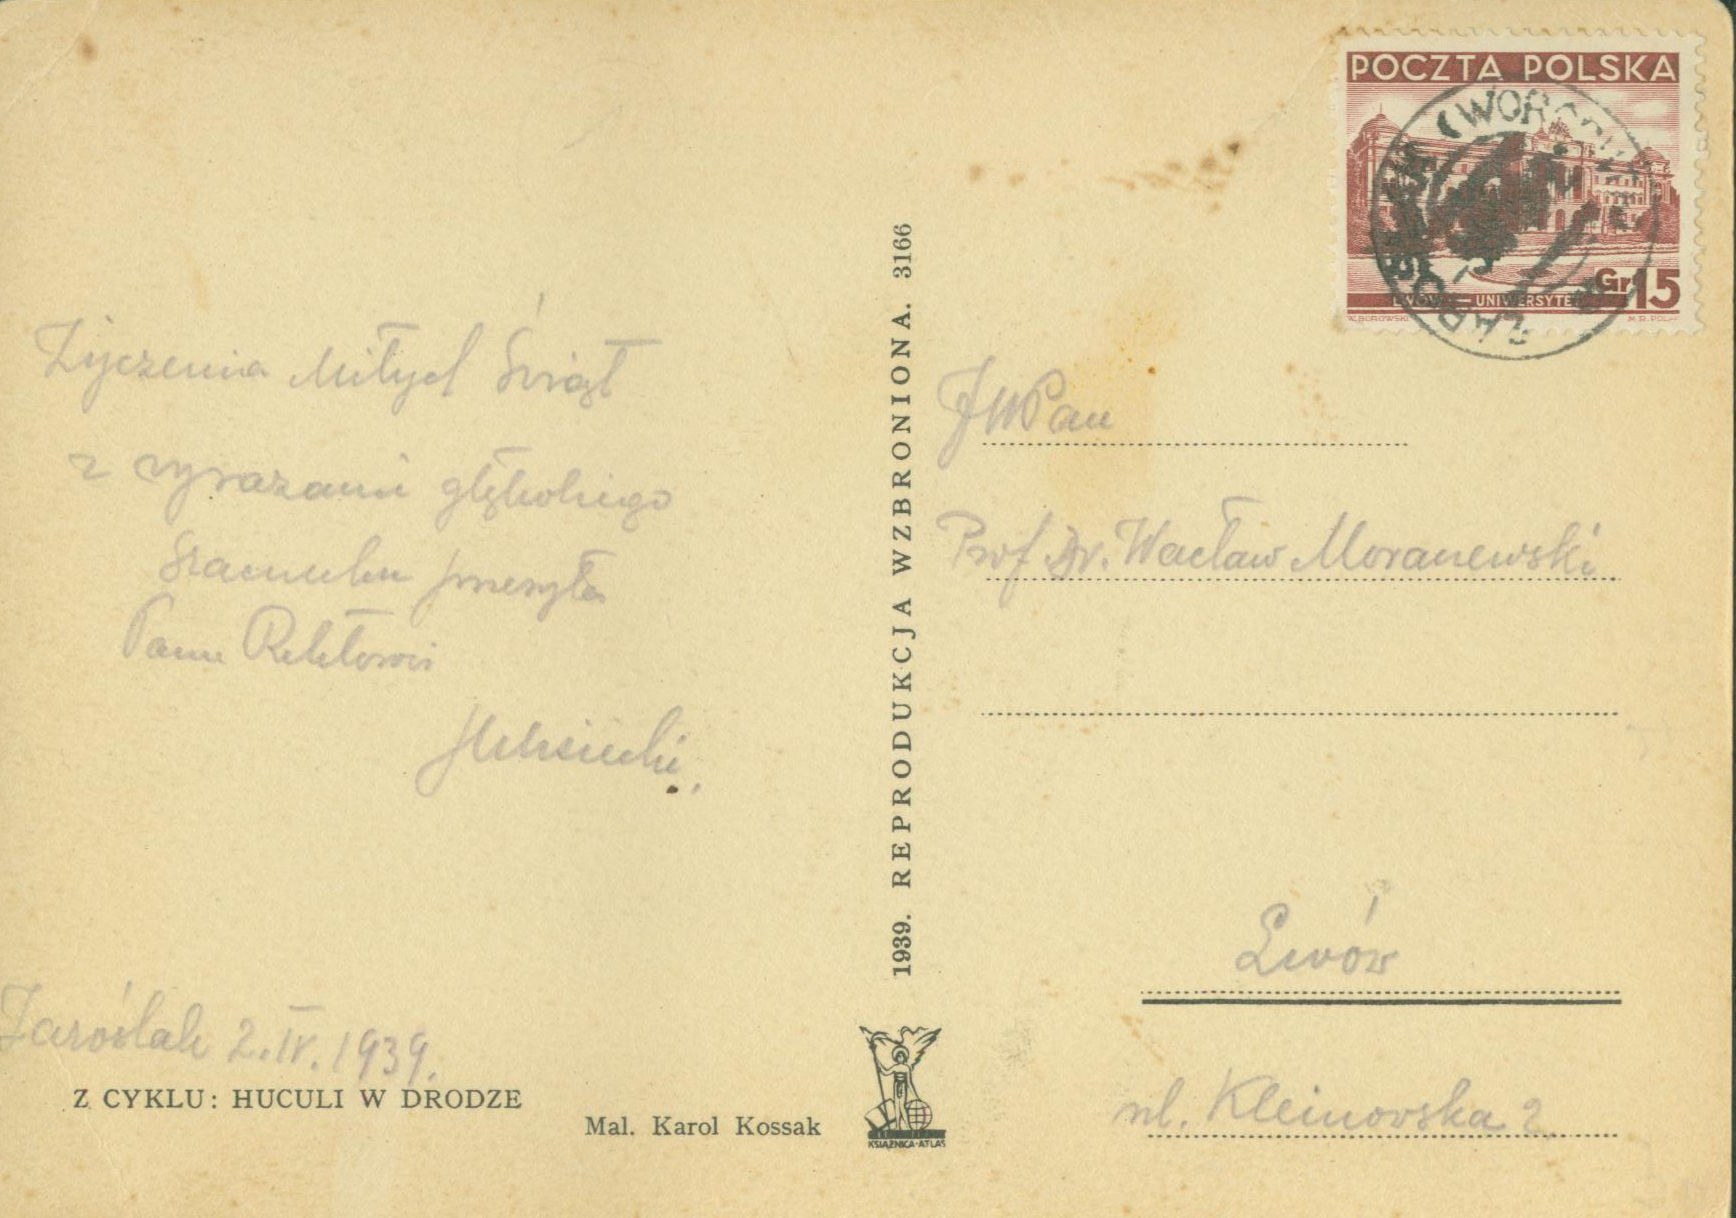 Życzenia Miłych Świąt
z wyrazami głębokiego
szacunku przesyła
Panu Rektorowi
Zaroślak 2.IV.1939.
Z CYKLU: HUCULI W DRODZE
Mal. Karol Kossak
1939. REPRODUKCJA WZBRONIONA. 3166
KSIĄŻNICA-ATLAS
POCZTA POLSKA
LWÓW — UNIWERSYTET
Gr 15
W. BOROWSKI
JWPan
Prof. Dr. Wacław Moraczewski
Lwów
ul. Kleinowska 2